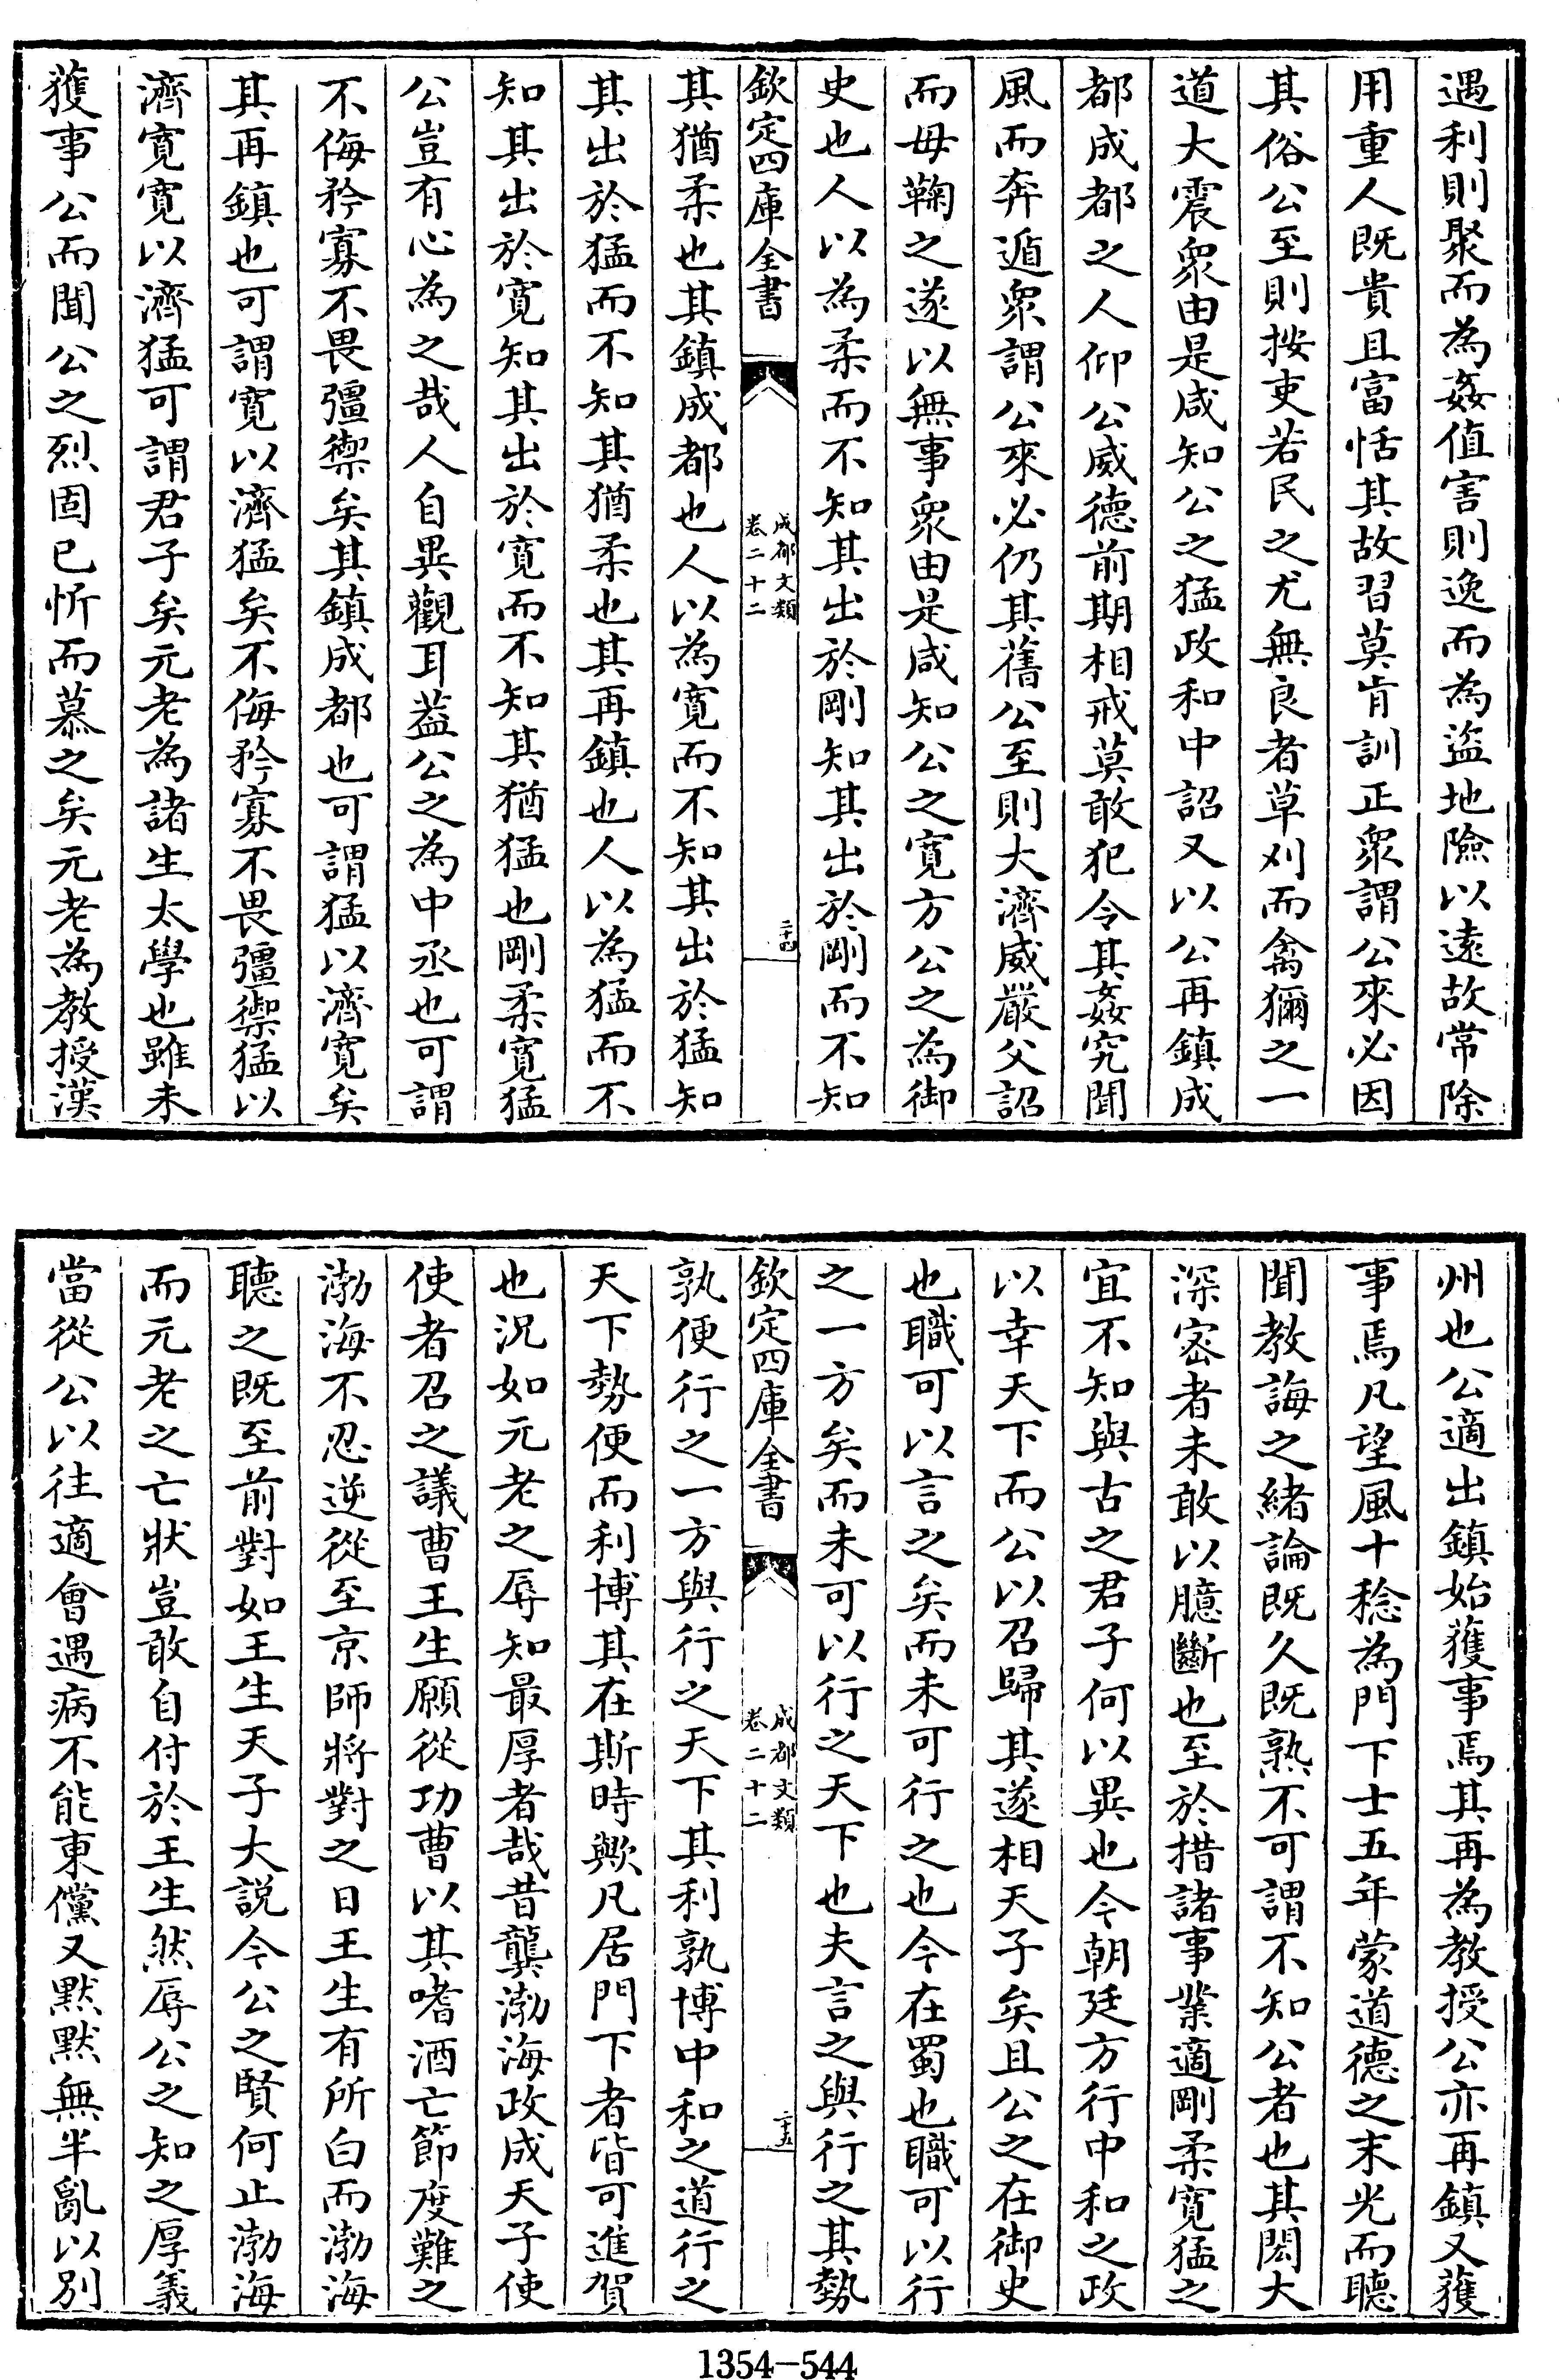 遇利則聚而為姦值害則逸而為盜地險以逺故常除
用重人既貴且富恬其故習莫肯訓正衆謂公來必因
其俗公至則按吏若民之尤無良者草刈而禽獮之一
道大震衆由是咸知公之猛政和中詔又以公再鎮成
都成都之人仰公威德前期相戒莫敢犯令其姦宄聞
風而奔遁衆謂公來必仍其舊公至則大濟威嚴父詔
而毋鞠之遂以無事衆由是咸知公之寛方公之為御
史也人以為柔而不知其出於剛知其出於剛而不知
欽定四庫全書
成都文類
卷二十二
二十四
其猶柔也其鎮成都也人以為寛而不知其出於猛知
其出於猛而不知其猶柔也其再鎮也人以為猛而不
知其出於寛知其出於寛而不知其猶猛也剛柔寛猛
公豈有心為之哉人自異觀耳葢公之為中丞也可謂
不侮矜寡不畏彊禦矣其鎮成都也可謂猛以濟寛矣
其再鎮也可謂寛以濟猛矣不侮矜寡不畏彊禦猛以
濟寛寛以濟猛可謂君子矣元老為諸生太學也雖未
獲事公而聞公之烈固已忻而慕之矣元老為教授漢
州也公適出鎮始獲事焉其再為教授公亦再鎮又獲
事焉凡望風十稔為門下士五年蒙道德之末光而聽
聞教誨之緒論既久既熟不可謂不知公者也其閎大
深宻者未敢以臆斷也至於措諸事業適剛柔寛猛之
宜不知與古之君子何以異也今朝廷方行中和之政
以幸天下而公以召歸其遂相天子矣且公之在御史
也職可以言之矣而未可行之也今在蜀也職可以行
之一方矣而未可以行之天下也夫言之與行之其勢
欽定四庫全書
成都文類
卷二十二
二十五
孰便行之一方與行之天下其利孰博中和之道行之
天下勢便而利博其在斯時歟凡居門下者皆可進賀
也況如元老之辱知最厚者哉昔龔渤海政成天子使
使者召之議曹王生願從功曹以其嗜酒亡節度難之
渤海不忍逆從至京師將對之日王生有所白而渤海
聽之既至前對如王生天子大說今公之賢何止渤海
而元老之亡狀豈敢自付於王生然辱公之知之厚義
當從公以往適會遇病不能東儻又黙黙無半亂以别
1354-544